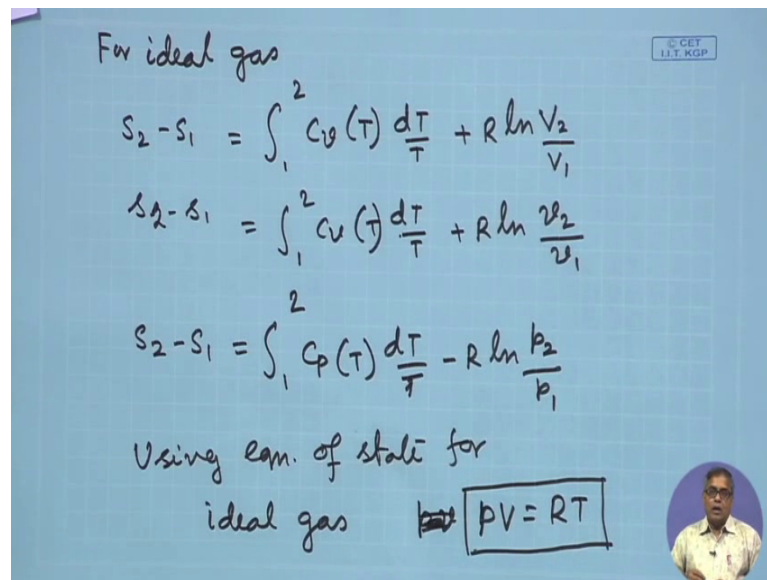 For ideal gas
© CET
I.I.T. KGP
S₂-S₁ = ∫₁² Cv (T) dT/T + R ln V₂/V₁
s₂-s₁ = ∫₁² Cv (T) dT/T + R ln v₂/v₁
S₂-S₁ = ∫₁² Cp (T) dT/T - R ln p₂/p₁
Using eqn. of state for
ideal gas pV = RT